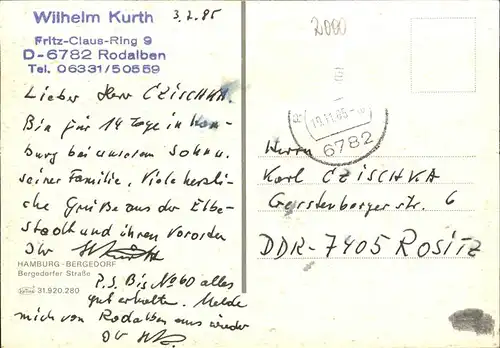 Wilhelm Kurth
3.2.85
Fritz-Claus-Ring 9
D-6782 Rodalben
Tel. 06331/50559
Lieber Herr CZISCHKA.
Bin für 14 Tage in Ham-
burg bei unserem Sohn u.
seiner Familie. Viele herzli-
che Grüße aus der Elbe-
stadt und ihren Vororten
Ihr WKurth
HAMBURG-BERGEDORF
Bergedorfer Straße
31.920.280
P.S. Bis No 60 alles
gut erhalten. Melde
mich von Rodalben aus wieder
Ihr WK
2000
19.11.85
6782
Herrn
Karl CZISCHKA
Gerstenbergerstr. 6
DDR-7405 ROSITZ